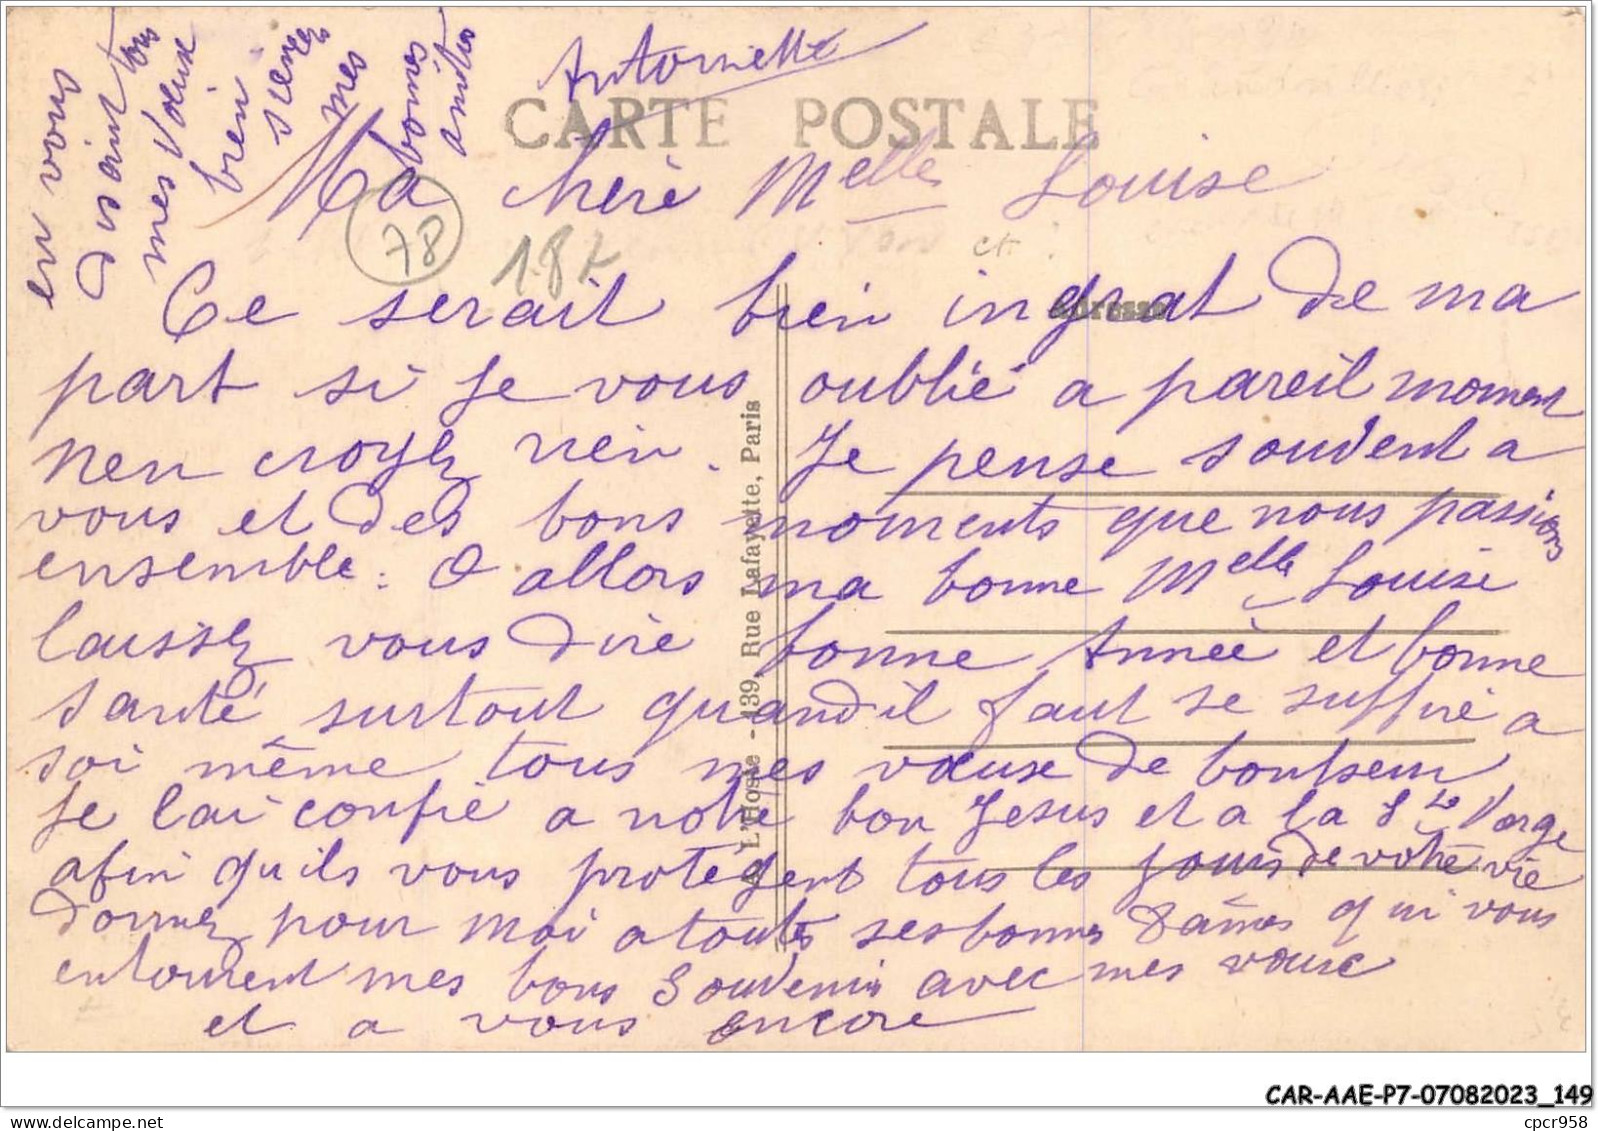 CARTE POSTALE
Ma chère Melle Louise
78
187
Ce serait bien ingrat de ma
part si je vous oublié a pareil moment
nen croyez rien. Je pense souvent a
vous et des bons moments que nous passions
ensemble. O allors ma bonne Melle Louise
laissez vous dire bonne Année et bonne
santé surtout quand il faut se suffire a
soi même tous mes vœuse de bonheur
Je lai confié a notre bon Jesus et a la Ste Vierge
afin quils vous protégent tous les jours de votre vie
donnez pour moi a toutes ses bonnes Dames qui vous
entourent mes bons souvenir avec mes vœuse
et a vous encore
en vous
disaint tous
mes vœuse
bien
sicères
mes
bonnes
amitiés
Antoinette
Adresse
A. L'Hoste - 139, Rue Lafayette, Paris
CAR-AAE-P7-07082023_149
cpcr958